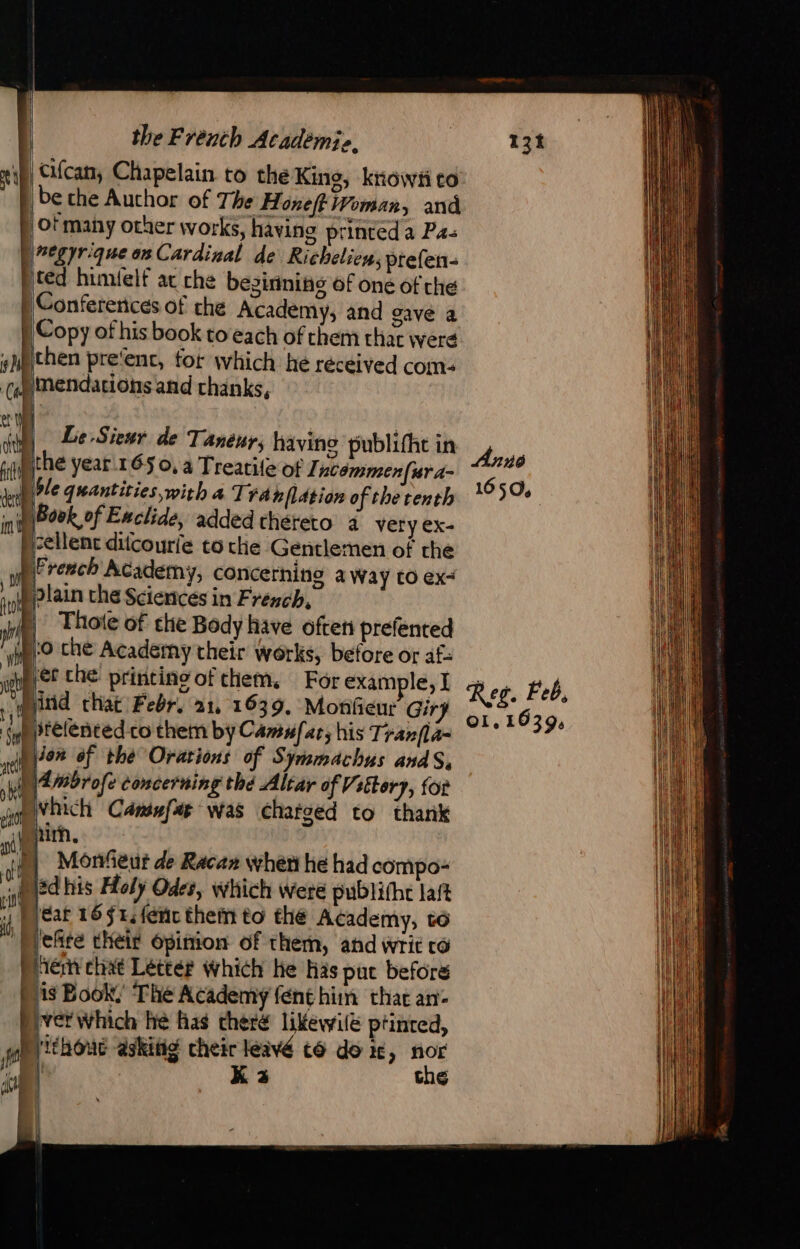 the French Academie, 131
ciſcan, Chapelain to the King, known to
be the Author of The Honeſt Woman, and
of many other works, having printed a Pa-
negyrique on Cardinal de Richelieu, preſen-
ted himſelf at the beginning of one of the
Conferences of the Academy, and gave a
Copy of his book to each of them that were
then preſent, for which he received com-
mendations and thanks,
Le Sieur de Taneur, having publiſht in
the year 1650, a Treatiſe of Incommenſura-
ble quantities, with a Tranſlation of the tenth
Book of Euclide, added thereto a very ex-
cellent diſcourſe to the Gentlemen of the
French Academy, concerning a way to ex-
plain the Sciences in French,
Anno
1650,
Thoſe of the Body have often preſented
to the Academy their works, before or af-
ter the printing of them. For example, I
find that Febr. 21. 1639. Monſieur Giry
preſented to them by Camuſat, his Tranſla-
tion of the Orations of Symmachus and S,
Ambroſe concerning the Altar of Victory, for
which Camuſat was charged to thank
him.
Reg. Feb,
01. 1639.
Monſieur de Racan when he had compo-
ſed his Holy Odes, which were publiſht laſt
year 1651. ſent them to the Academy, to
deſire their opinion of them, and writ to
them that Letter which he has put before
his Book. The Academy ſent him that an-
ſwer which he has there likewiſe printed,
without asking their leave to do it, nor
K 2 the